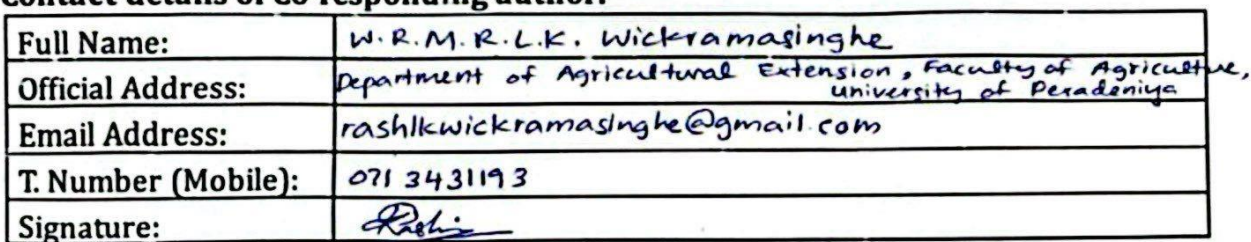 Contact details of Co-responding author:
Full Name: W.R.M.R.L.K. Wickramasinghe
Official Address: Department of Agricultural Extension, Faculty of Agriculture,
University of Peradeniya
Email Address: rashlkwickramasinghe@gmail.com
T. Number (Mobile): 071 3431193
Signature: